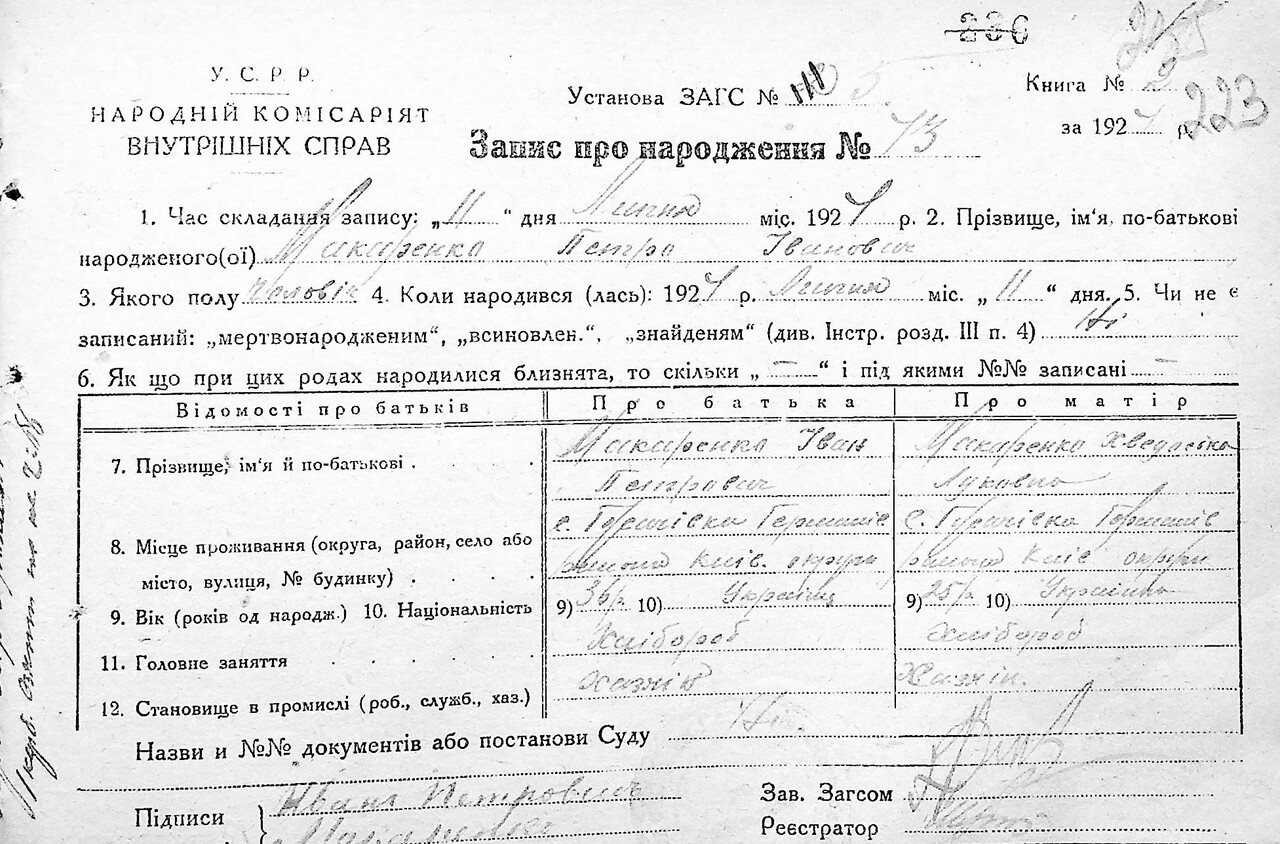 236
У. С. Р. Р.
НАРОДНІЙ КОМІСАРІЯТ
ВНУТРІШНІХ СПРАВ
Установа ЗАГС №
Книга № 2
за 192 р.
223
Запис про народження № 73
1. Час складання запису: „11“ дня Липня міс. 192 р. 2. Прізвище, ім'я, по-батькові
народженого(ої) Макаренко Петро Іванович
3. Якого полу чоловіч 4. Коли народився (лась): 192 р. Липня міс. „11“ дня. 5. Чи не є
записаний: „мертвонародженим“, „всиновлен.“, „знайденям“ (див. Інстр. розд. III п. 4) Ні
6. Як що при цих родах народилися близнята, то скільки „—“ і під якими №№ записані —
Відомості про батьків
Про батька
Про матір
7. Прізвище, ім'я й по-батькові
Макаренко Іван
Петрович
Макаренко
Луковна
8. Місце проживання (округа, район, село або
місто, вулиця, № будинку)
с.
района Київ. округи
с.
района Київ округи
9. Вік (років од народж.) 10. Національність
9) 36 р. 10) Українц
9) 25 р. 10) Українка
11. Головне заняття
Хлібороб
Хлібороб
12. Становище в промислі (роб., служб., хаз.)
Хазяїн
Хазяїн.
Назви и №№ документів або постанови Суду Ні.
Підписи
Иван Петрович
Макаренко
Зав. Загсом
Реєстратор